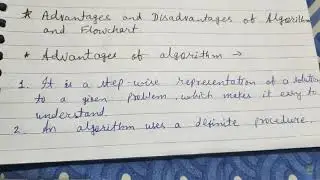 * Advantages and Disadvantages of Algorithm
and Flowchart
* Advantages of algorithm →
1. It is a step-wise representation of a solution
to a given problem, which makes it easy to
understand.
2. An algorithm uses a definite procedure.